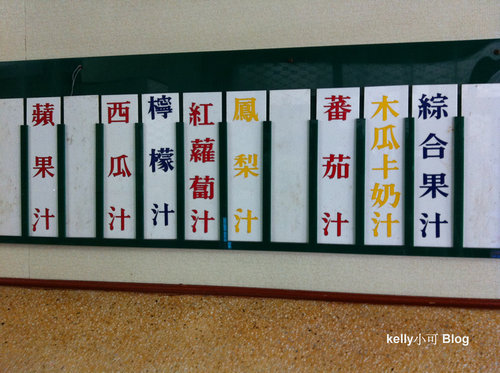 蘋果汁
西瓜汁
檸檬汁
紅蘿蔔汁
鳳梨汁
蕃茄汁
木瓜卡奶汁
綜合果汁
kelly小可 Blog